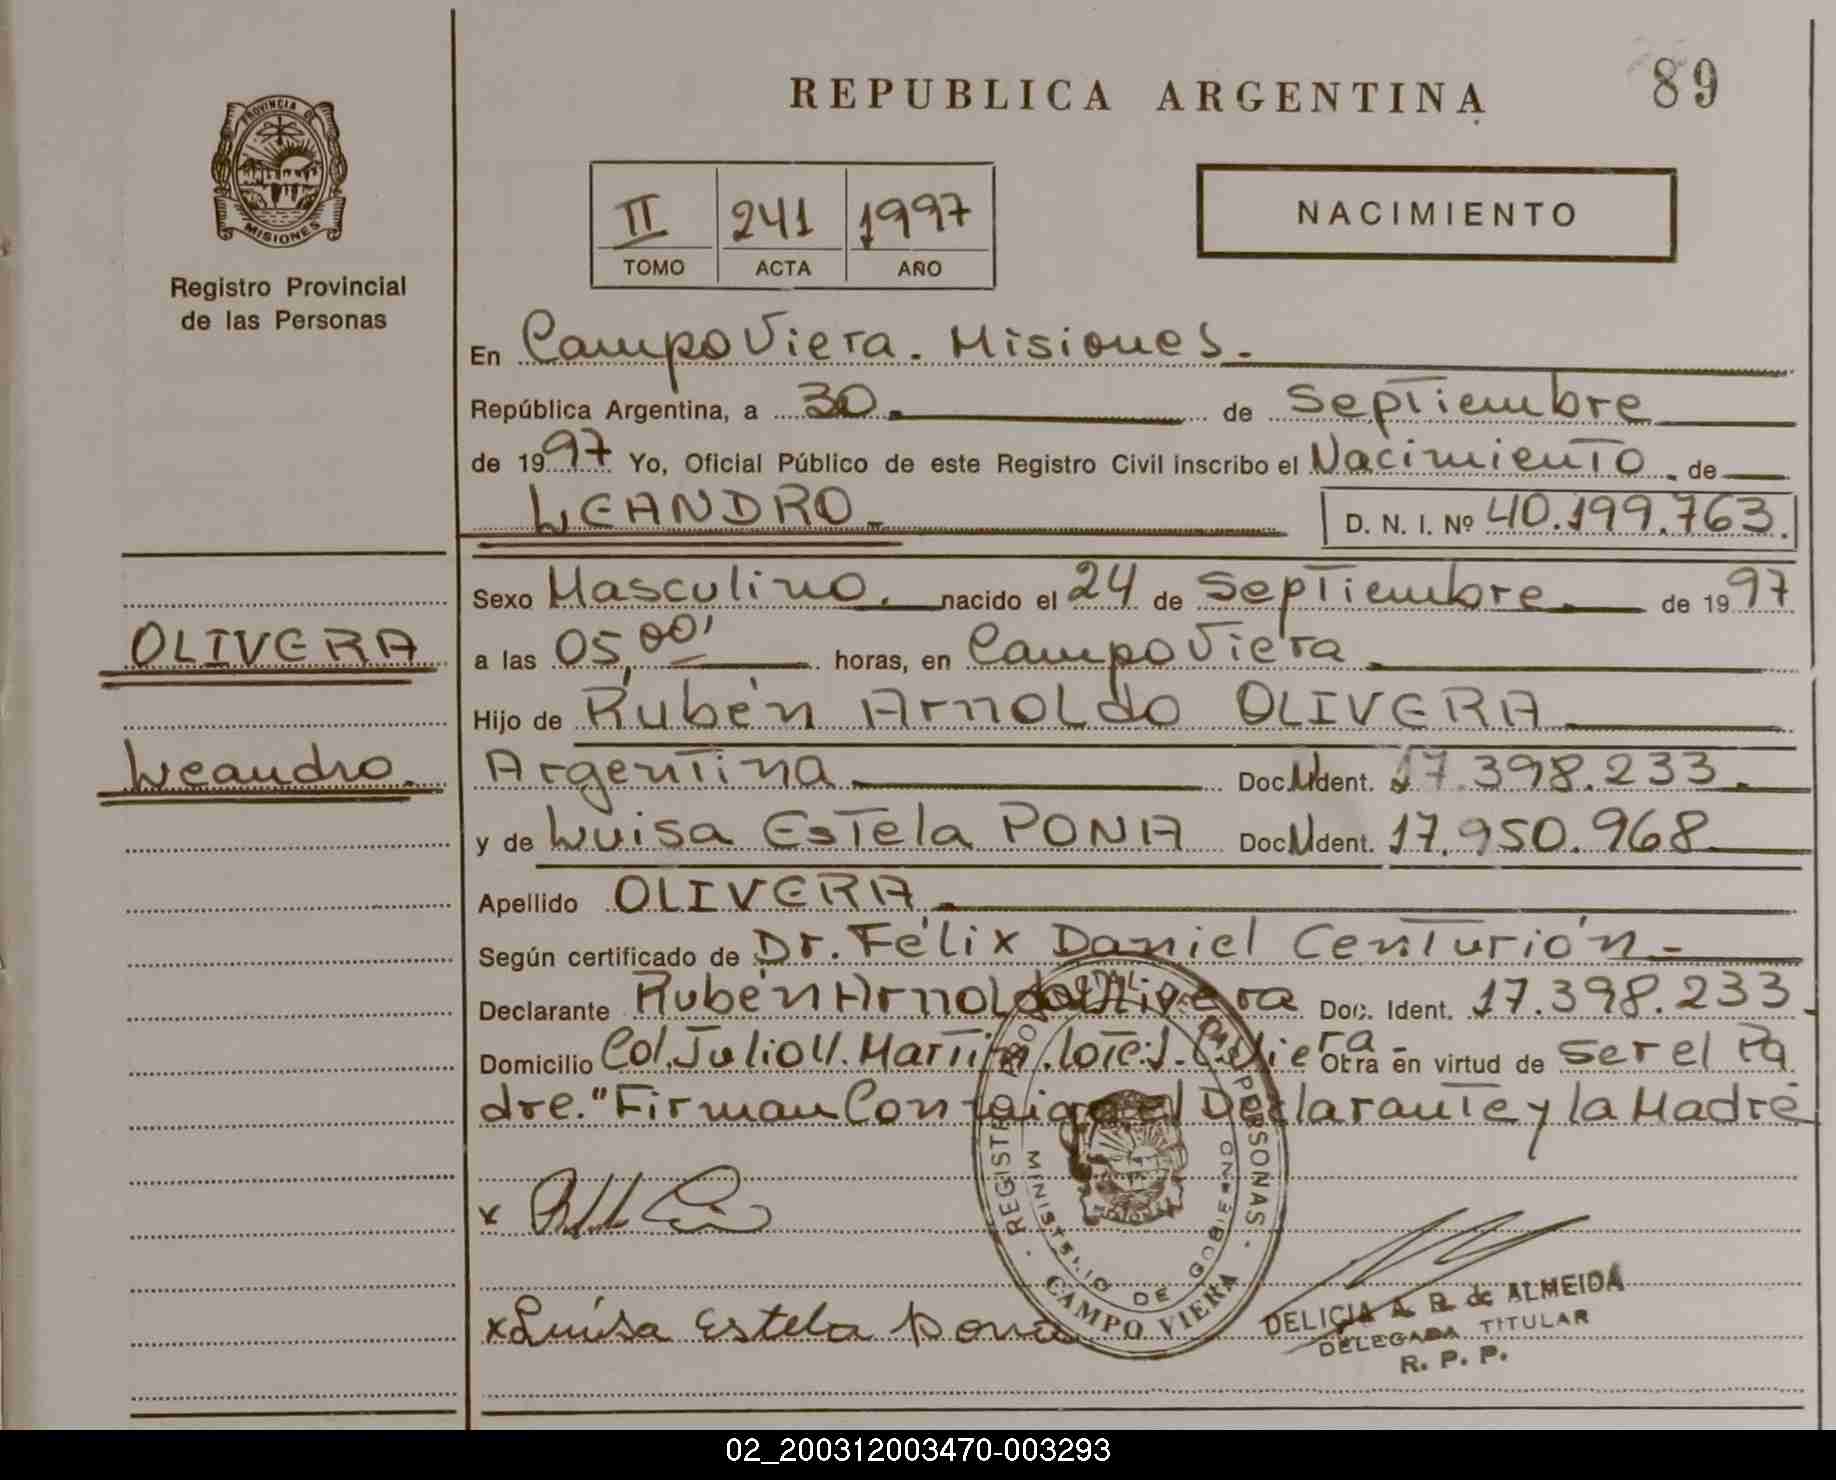 REPUBLICA ARGENTINA
89
PROVINCIA DE
MISIONES
Registro Provincial
de las Personas
II 241 1997
TOMO ACTA AÑO
NACIMIENTO
En Campo Viera. Misiones.
República Argentina, a 30 de Septiembre
de 1997 Yo, Oficial Público de este Registro Civil inscribo el Nacimiento de
LEANDRO D. N. I. Nº 40.199.763.
Sexo Masculino. nacido el 24 de Septiembre de 1997
OLIVERA
a las 05,00' horas, en Campo Viera
Hijo de Rubén Arnoldo OLIVERA
Leandro.
Argentina Doc. Ident. 17.398.233.
y de Luisa Estela PONA Doc. Ident. 17.950.968
Apellido OLIVERA
Según certificado de Dr. Félix Daniel Centurión
Declarante Rubén Arnoldo Olivera Doc. Ident. 17.398.233.
Domicilio Col. Julio U. Martin. lote: 1. C. Viera Otra en virtud de ser el Pa
dre. "Firman Conmigo el Declarante y la Madre
x
x Luisa Estela Pona
REGISTRO PROVINCIAL DE LAS PERSONAS
MINISTERIO DE GOBIERNO
CAMPO VIERA
DELICIA A. R. de ALMEIDA
DELEGADA TITULAR
R. P. P.
02_200312003470-003293